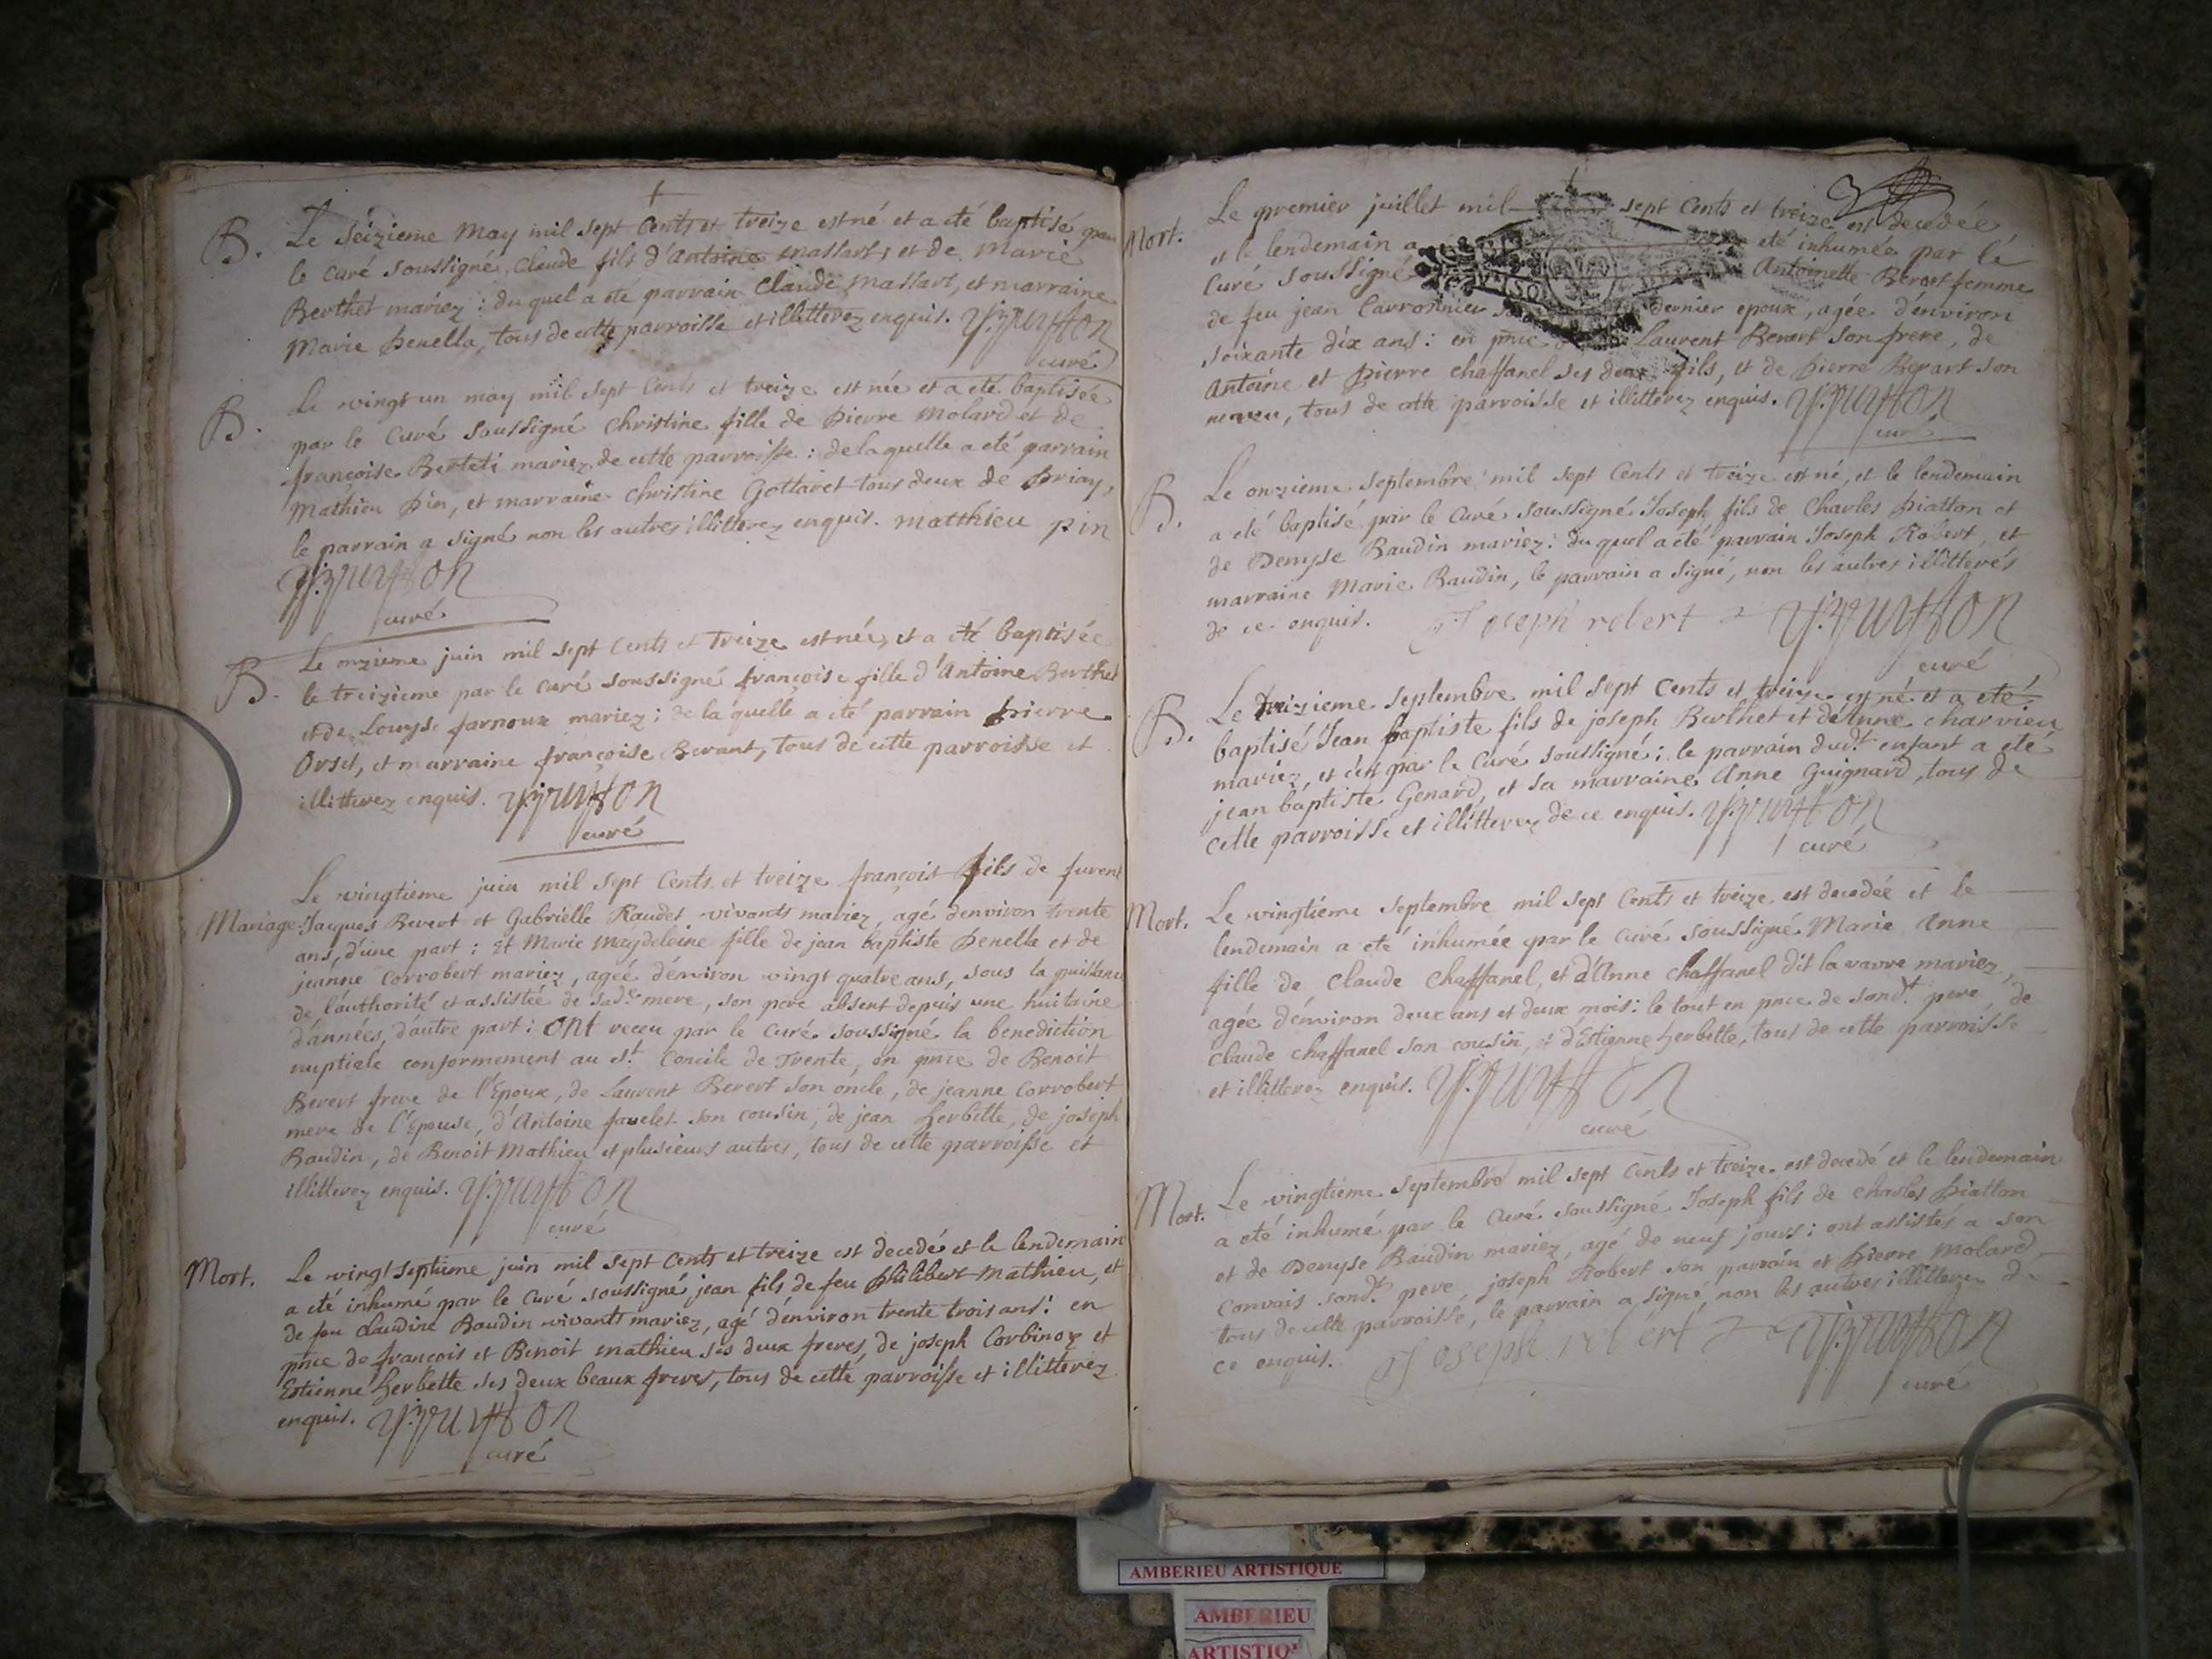 B. Le séizieme may mil sept cents et treize est né et a eté baptisé par
le curé soussigné, Claude fils d'Antoine massart, et de Marie
Berthet mariez : du quel a eté parrain Claude massart, et marraine
Marie Penella, tous de cette parroisse et illitterez enquis.
curé
B. Le vingt un may mil sept cents et treize est née et a eté baptisée
par le curé soussigné christine fille de Pierre molard et de
françoise Berteti mariez de cette parroisse : de laquelle a eté parrain
Mathieu Pin, et marraine Christine Gottaret tous deux de Priay,
le parrain a signé non les autres illitterez enquis. matthieu pin
curé
B. Le onzieme juin mil sept cents et treize est née, et a eté baptisée
le treizieme par le curé soussigné françoise fille d'Antoine Berthet
et de Louyse farnoux mariez : de la quelle a eté parrain pierre
Orset, et marraine françoise Berant, tous de cette parroisse et
illitterez enquis.
curé
Le vingtieme juin mil sept cents et treize françois fils de furent
Mariage Jacques Berert et Gabrielle Raudet vivants mariez, agé d'environ trente
ans, d'une part : Et Marie magdeleine fille de jean baptiste Penella et de
jeanne Corrobert mariez, agée d'environ vingt quatre ans, sous la puissance
de l'authorité et assistée de sade mere, son pere absent depuis une huitaine
d'années, d'autre part : ont receu par le curé soussigné la benediction
nuptiale conformement au st. Concile de Trente, en pnce de Benoit
Berert frere de l'Epoux, de Laurent Berert son oncle, de jeanne Corrobert
mere de l'Epouse, d'Antoine favelet son cousin, de jean herbette, de joseph
Baudin, de Benoit Mathieu et plusieurs autres, tous de cette parroisse et
illitterez enquis.
curé
Mort. Le vingt septieme juin mil sept cents et treize est decedé et le lendemain
a eté inhumé par le curé soussigné jean fils de feu philibert mathieu, et
de feu claudine Baudin vivants mariez, agé d'environ trente trois ans : en
pnce de françois et Benoit mathieu ses deux freres, de joseph Corbinoz et
Estienne herbette ses deux beaux freres, tous de cette parroisse et illitterez
enquis.
curé
Mort. Le premier juillet mil sept cents et treize est decedée
et le lendemain a eté inhumée par le
curé soussigné Antoinette Berert femme
de feu jean Carronnier dernier epoux, agée d'environ
soixante dix ans : en pnce Laurent Berert son frere, de
Antoine et pierre chaffanel ses deux fils, et de pierre Berart son
neveu, tous de cette parroisse et illitterez enquis.
curé
B. Le onzieme septembre mil sept cents et treize est né, et le lendemain
a eté baptisé par le curé soussigné Joseph fils de Charles piatton et
de Denyse Baudin mariez : du quel a eté parrain Joseph Robert, et
marraine Marie Baudin, le parrain a signé, non les autres illitterés
de ce enquis. Joseph robert
curé
B. Le treizieme septembre mil sept cents et treize est né et a eté
baptisé Jean baptiste fils de joseph Berthet et d'Anne charvieu
mariez, et c'est par le curé soussigné : le parrain dudt. enfant a eté
jean baptiste Genard, et sa marraine Anne Guignard, tous de
cette parroisse et illitterez de ce enquis.
curé
Mort. Le vingtiéme septembre mil sept cents et treize est decedée et le
lendemain a eté inhumée par le curé soussigné Marie Anne
fille de claude chaffanel, et d'Anne chaffanel dit la varre mariez,
agée d'environ deux ans et deux mois : le tout en pnce de sondt. pere, de
claude chaffanel son cousin, et d'Estienne herbette, tous de cette parroisse
et illitterez enquis.
curé
Mort. Le vingtiéme septembre mil sept cents et treize est decedé et le lendemain
a eté inhumé par le curé soussigné Joseph fils de charles piatton
et de Denyse Baudin mariez, agé de neuf jours : ont assistés a son
convois sondt. pere, joseph Robert son parrain et pierre molard
tous de cette parroisse, le parrain a signé, non les autres illitterez de
ce enquis. Joseph robert
curé
AMBERIEU ARTISTIQUE
AMBERIEU
ARTISTIQ